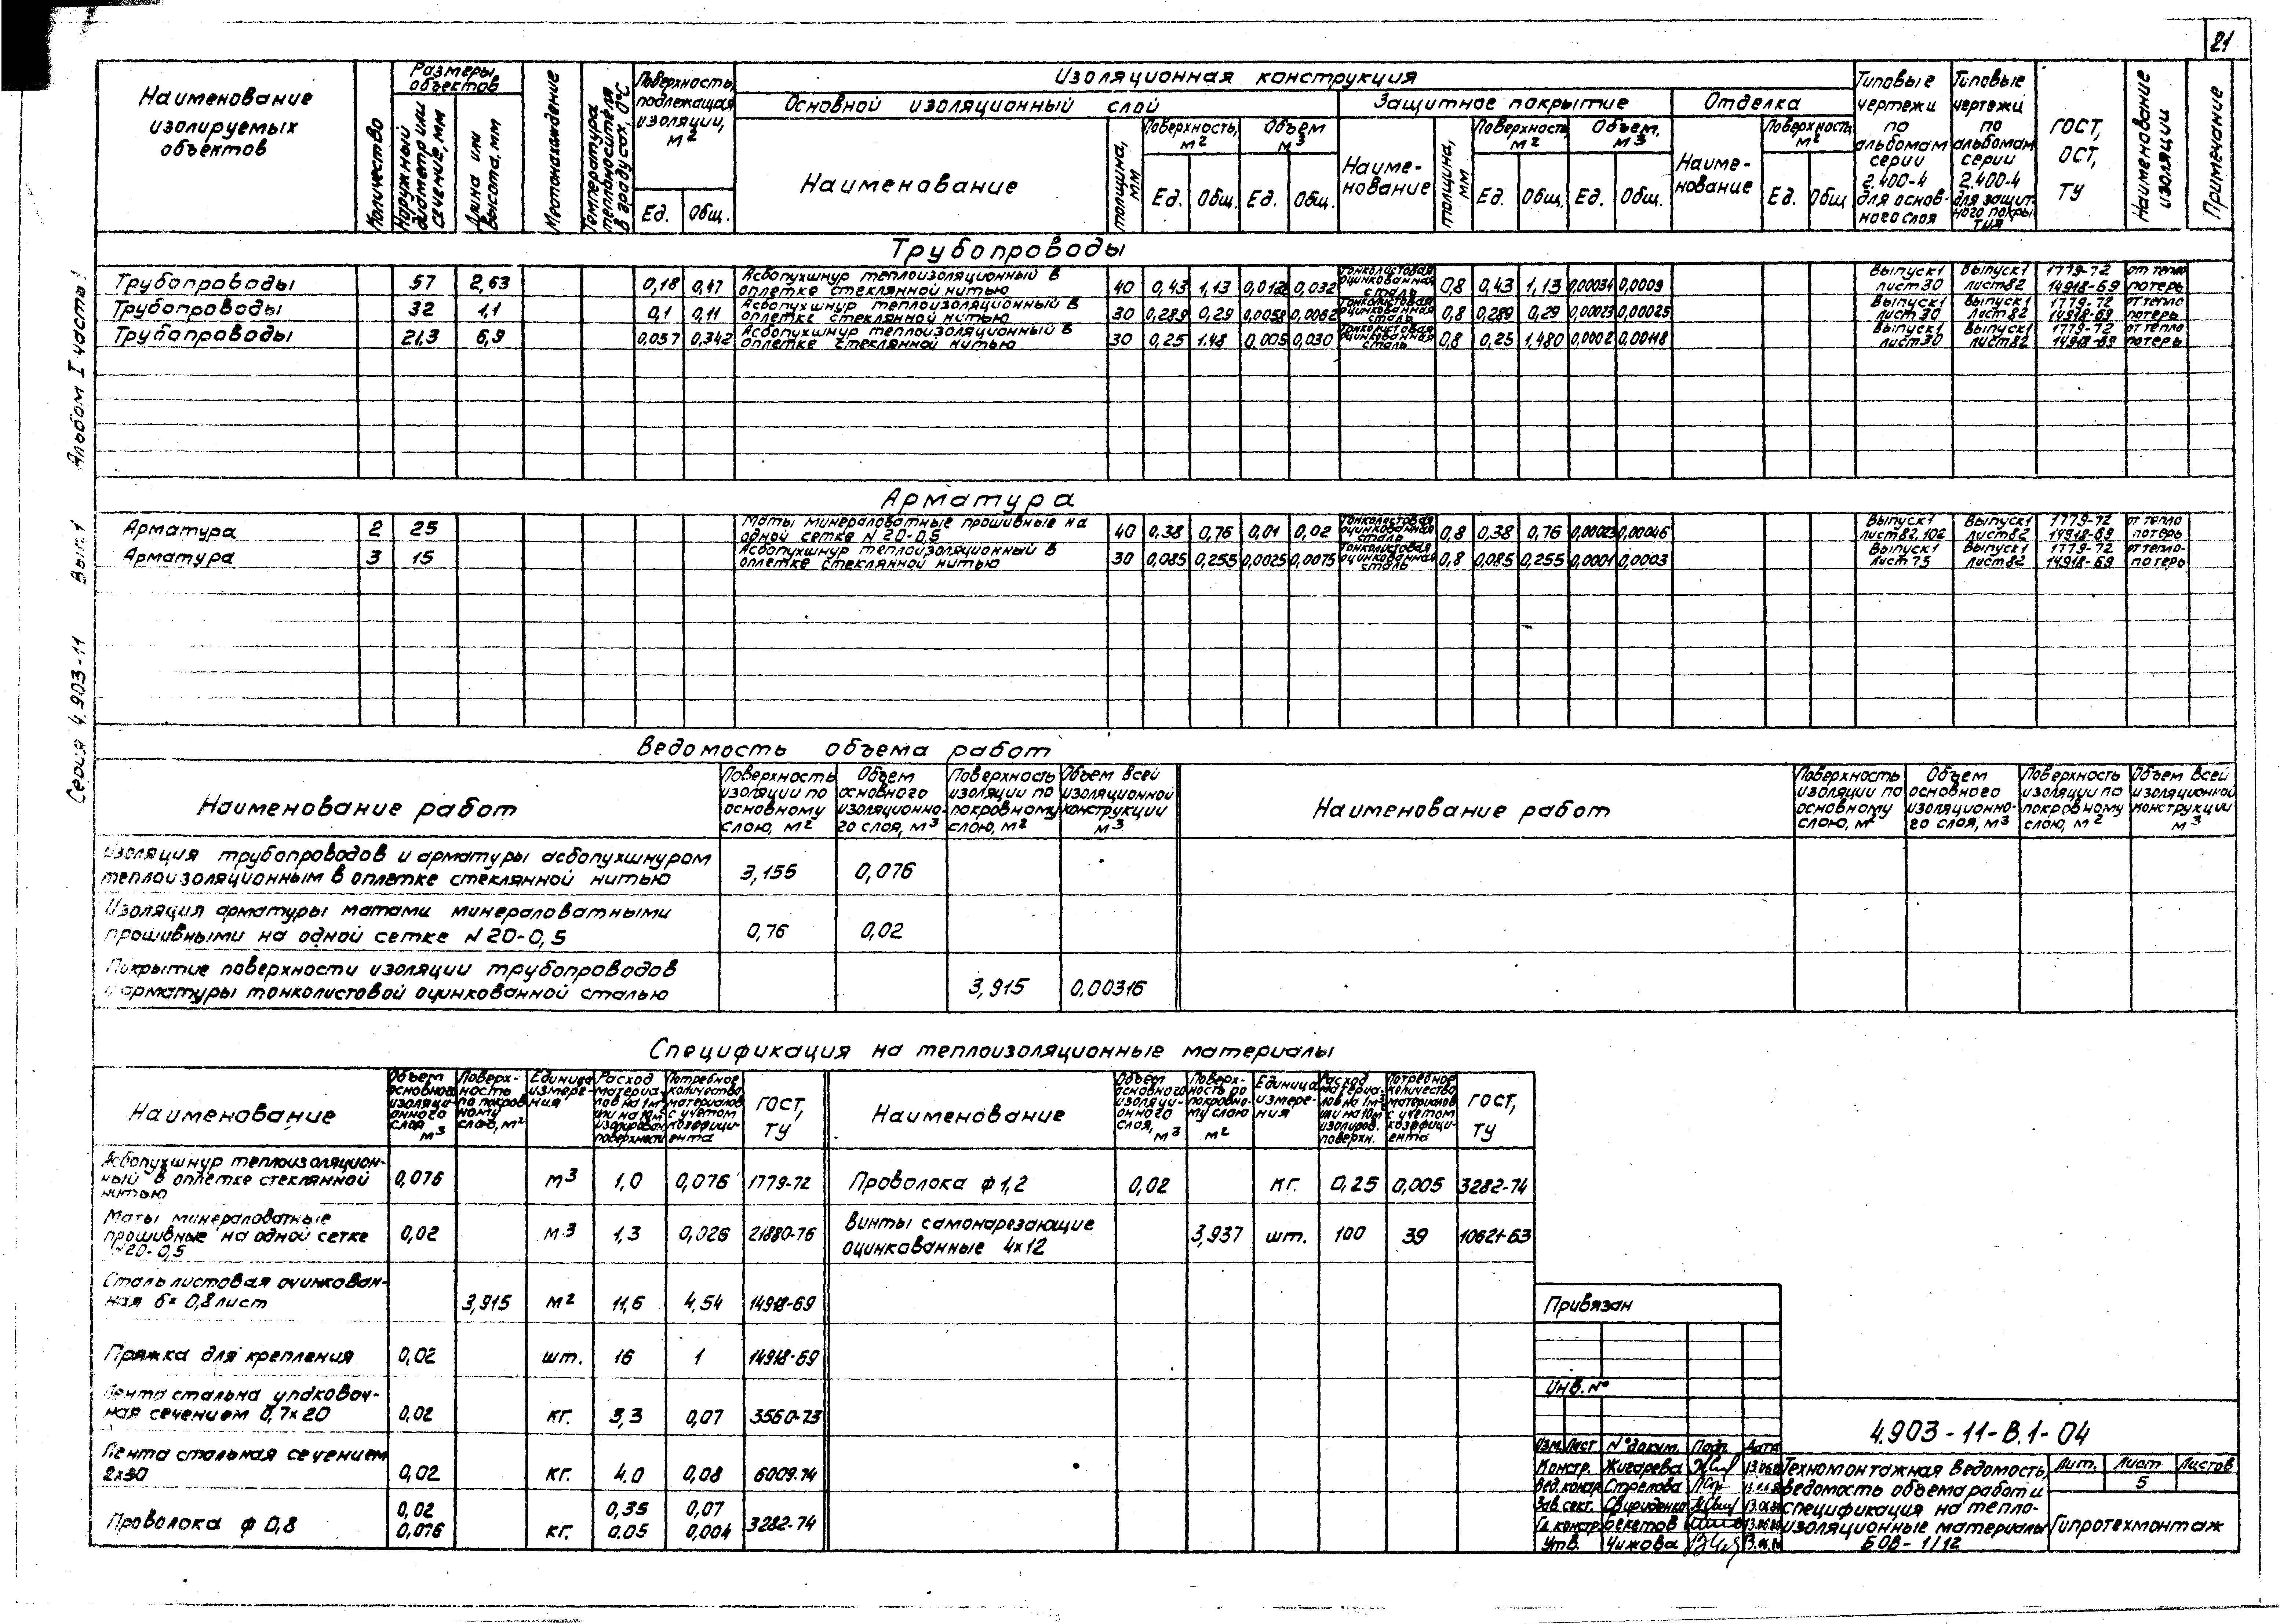 21
Серия 4.903-11 Вып.1 Альбом I часть 1
Наименование изолируемых объектов
Количество
Размеры объектов
Наружный диаметр или сечение, мм
Длина или высота, мм
Местонахождение
Температура теплоносителя в градусах, 0°С
Поверхность, подлежащая изоляции, м2
Ед. Общ.
Изоляционная конструкция
Основной изоляционный слой
Наименование
толщина, мм
Поверхность, м2
Ед. Общ.
Объем м3
Ед. Общ.
Защитное покрытие
Наименование
толщина, мм
Поверхность, м2
Ед. Общ.
Объем, м3
Ед. Общ.
Отделка
Наиме-нование
Поверхность, м2
Ед. Общ.
Типовые чертежи по альбомам серии 2.400-4 для основного слоя
Типовые чертежи по альбомам серии 2.400-4 для защитного покрытия
ГОСТ, ОСТ, ТУ
Наименование изоляции
Примечание
Трубопроводы
Трубопроводы 57 2,63 0,18 0,47 Асбопухшнур теплоизоляционный в оплетке стеклянной нитью 40 0,43 1,13 0,012 0,032 Тонколистовая оцинкованная сталь 0,8 0,43 1,13 0,00034 0,0009 Выпуск1 лист30 Выпуск1 лист82 1779-72 14918-69 от тепло потерь
Трубопроводы 32 1,1 0,1 0,11 Асбопухшнур теплоизоляционный в оплетке стеклянной нитью 30 0,289 0,29 0,0058 0,0062 Тонколистовая оцинкованная сталь 0,8 0,289 0,29 0,00023 0,00025 Выпуск1 лист30 Выпуск1 лист82 1779-72 14918-69 от тепло потерь
Трубопроводы 21,3 6,9 0,057 0,342 Асбопухшнур теплоизоляционный в оплетке стеклянной нитью 30 0,25 1.48 0.005 0,030 Тонколистовая оцинкованная сталь 0,8 0,25 1,480 0,0002 0,00118 Выпуск1 лист30 Выпуск1 лист82 1779-72 14918-69 от тепло потерь
Арматура
Арматура 2 25 Маты минераловатные прошивные на одной сетке N 20-0,5 40 0,38 0,76 0,01 0,02 Тонколистовая оцинкованная сталь 0,8 0,38 0,76 0,00023 0,00046 Выпуск1 лист82,102 Выпуск1 лист82 1779-72 14918-69 от тепло потерь
Арматура 3 15 Асбопухшнур теплоизоляционный в оплетке стеклянной нитью 30 0,085 0,255 0,0025 0,0075 Тонколистовая оцинкованная сталь 0,8 0,085 0,255 0,0001 0,0003 Выпуск1 лист 75 Выпуск1 лист82 1779-72 14918-69 от тепло-потерь
Ведомость объема работ
Наименование работ
Поверхность изоляции по основному слою, м2
Объем основного изоляционно-го слоя, м3
Поверхность изоляции по покровному слою, м2
Объем всей изоляционной конструкции м3
Наименование работ
Поверхность изоляции по основному слою, м2
Объем основного изоляционно-го слоя, м3
Поверхность изоляции по покровному слою, м2
Объем всей изоляционной конструкции м3
Изоляция трубопроводов и арматуры асбопухшнуром
теплоизоляционным в оплетке стеклянной нитью 3,155 0,076
Изоляция арматуры матами минераловатными
прошивными на одной сетке N 20-0,5 0,76 0,02
Покрытие поверхности изоляции трубопроводов
и арматуры тонколистовой оцинкованной сталью 3,915 0,00316
Спецификация на теплоизоляционные материалы
Наименование
Объем основного изоляци-онного слоя м3
Поверх-ность по покров-ному слою, м2
Единица измере-ния
Расход материа-лов на 1м3 или на 10м2 изолирован. поверхности
Потребное количество материалов с учетом коэффици-ента
ГОСТ, ТУ
Наименование
Объем основного изоляци-онного слоя, м3
Поверх-ность по покровно-му слою м2
Единица измере-ния
Расход материа-лов на 1м3 или на 10м2 изолиров. поверхн.
Потребное количество материалов с учетом коэффици-ента
ГОСТ, ТУ
Асбопухшнур теплоизоляцион-ный в оплетке стеклянной нитью 0,076 м3 1,0 0,076 1779-72
Проволока ф 1,2 0,02 кг. 0,25 0,005 3282-74
Маты минераловатные прошивные на одной сетке N20-0,5 0,02 м3 1,3 0,026 21880-76
Винты самонарезающие оцинкованные 4х12 3,937 шт. 100 39 10621-63
Сталь листовая оцинкован-ная б= 0,8 лист 3,915 м2 11,6 4,54 14918-69
Пряжка для крепления 0,02 шт. 16 1 14918-69
Лента стальна упаковоч-ная сечением 0,7х20 0,02 кг. 3,3 0,07 3560-73
Лента стальная сечением 2х30 0,02 кг. 4.0 0,08 6009.74
Проволока ф 0,8 0,02 0,076 кг. 0,35 0.05 0,07 0,004 3282-74
Привязан
Инв. N°
4.903-11-В.1-04
Изм. Лист N° докум. Подп. Дата
Констр. Жигарева 13.06.80
Вед. констр Стрелова
Зав. сект. Свириденко 13.06.80
Гл. констр. Бекетов 13.06.80
Утв. Чижова
Техномонтажная ведомость, ведомость объема работ и спецификация на тепло-изоляционные материалы БОВ-1/12
Лит. Лист Листов
5
Гипротехмонтаж